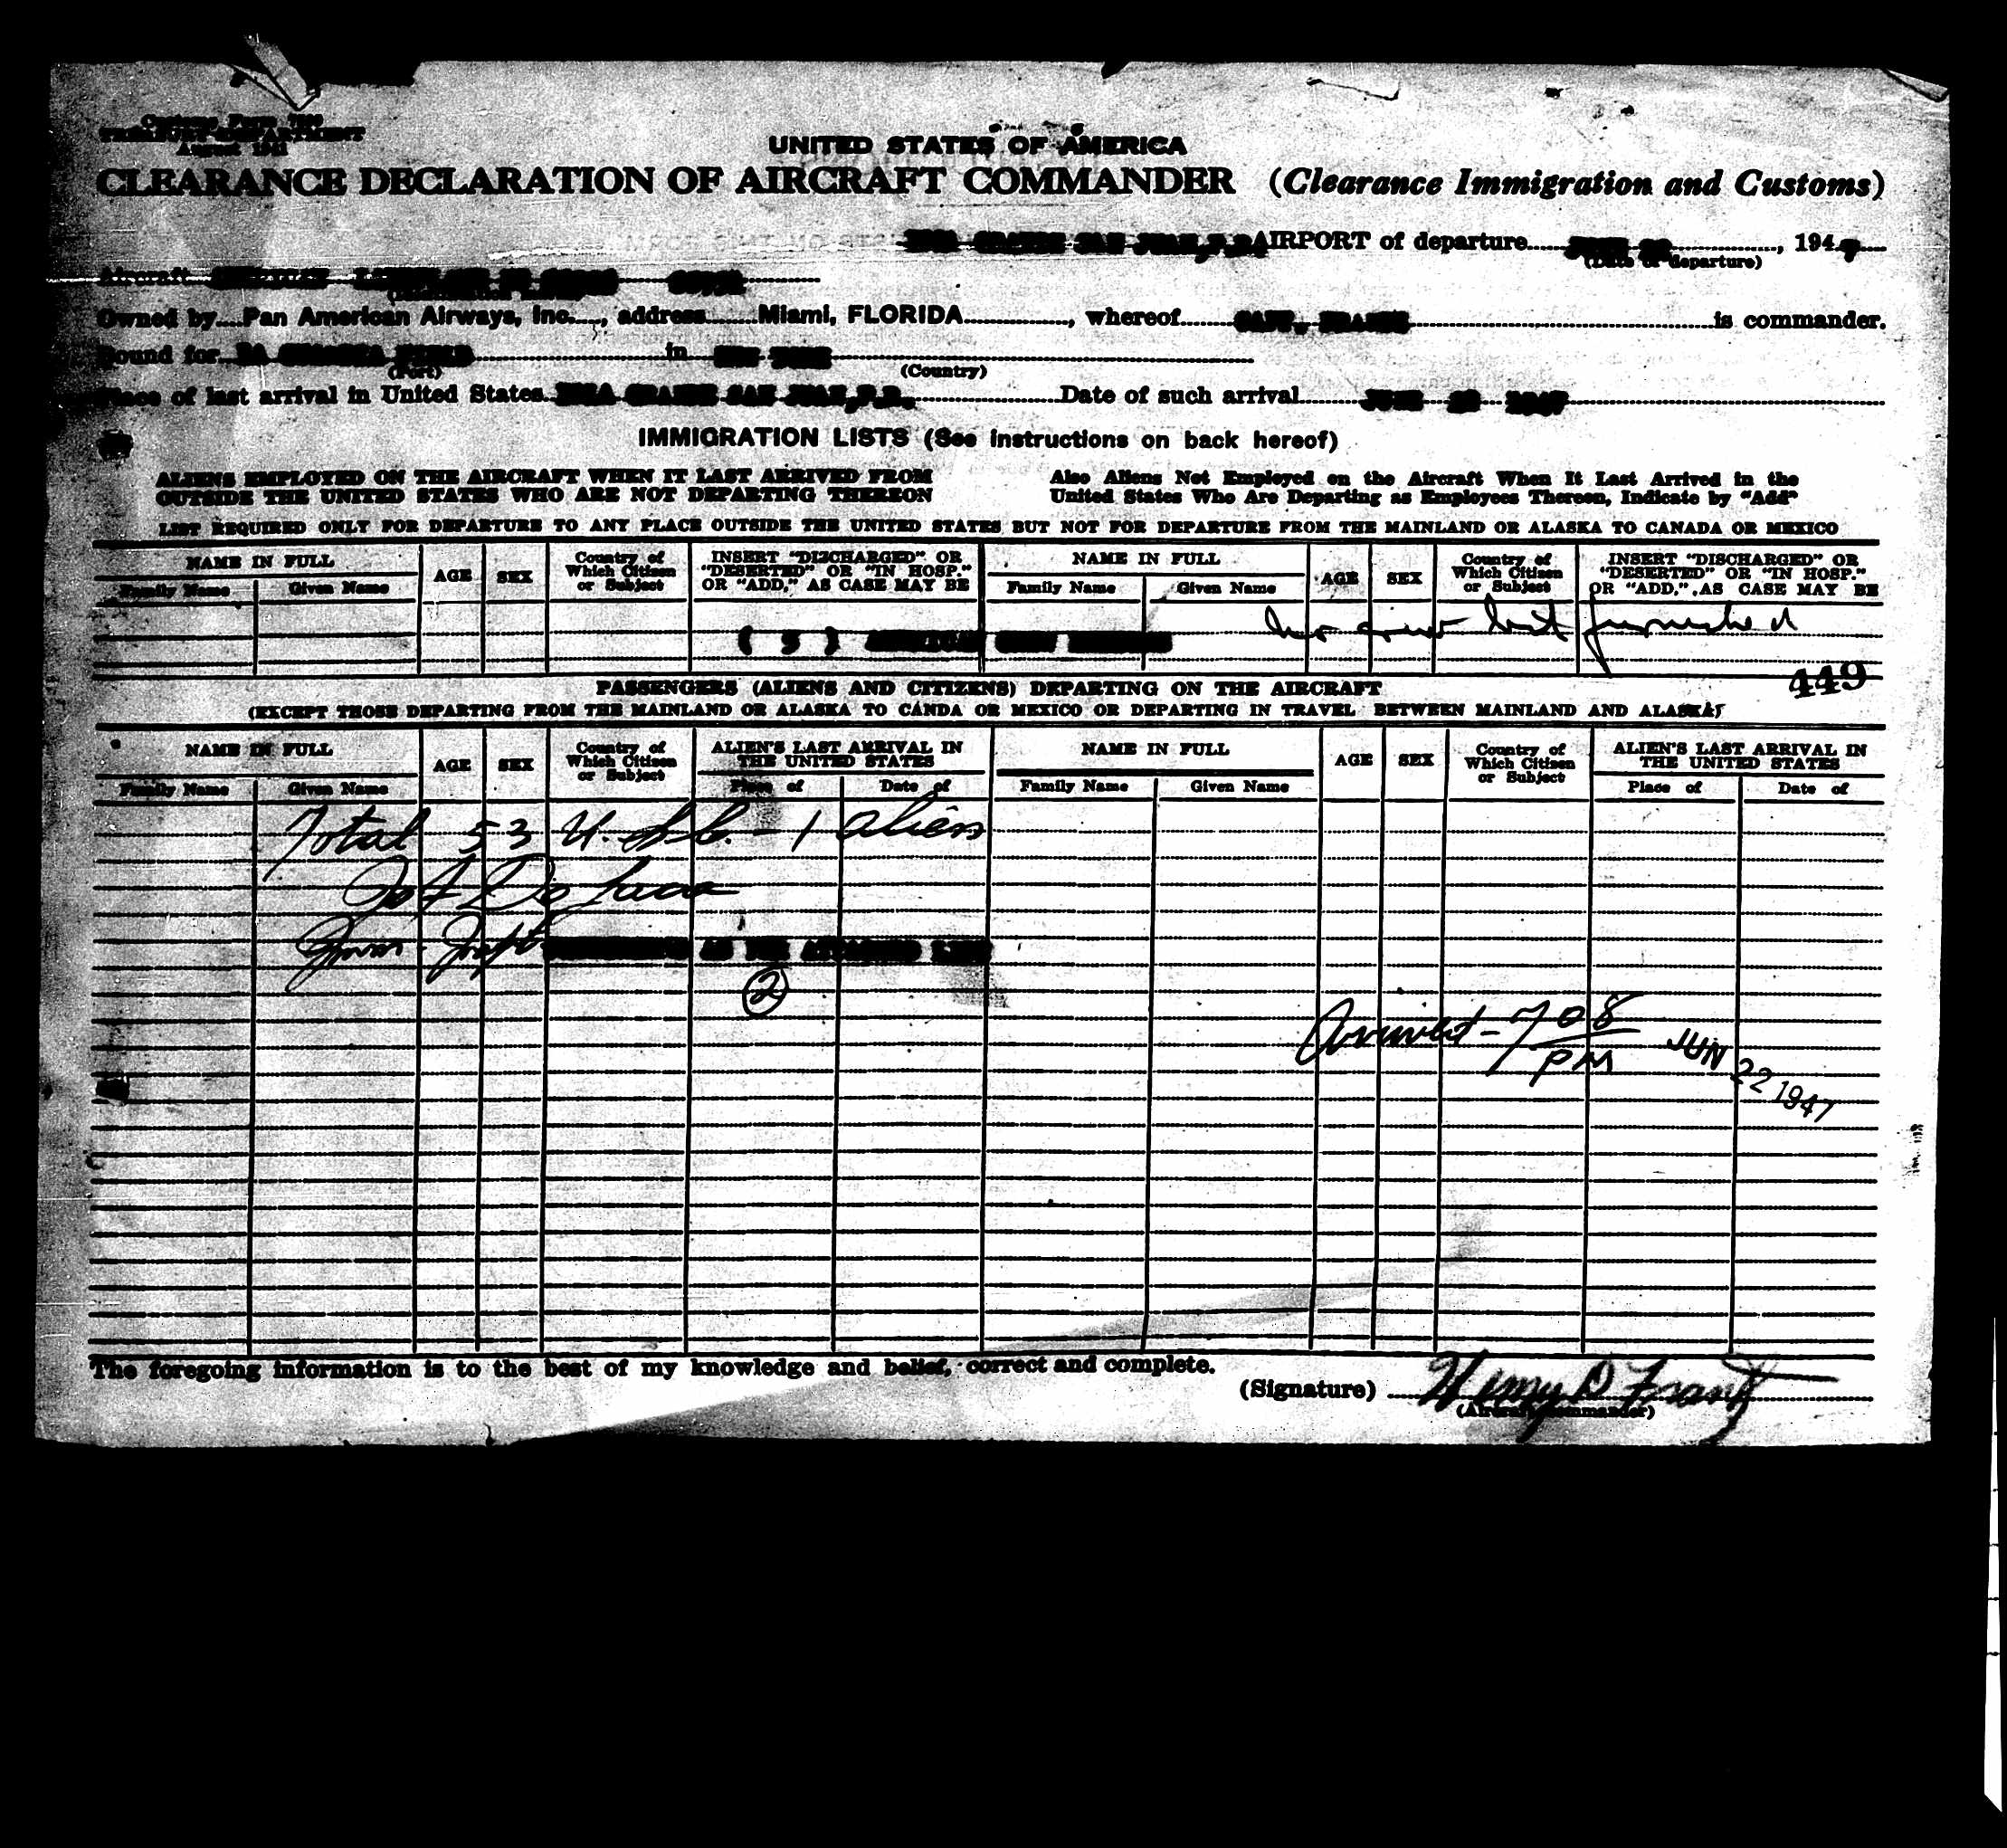 Customs Form
TREASURY DEPARTMENT
August 1941
UNITED STATES OF AMERICA
CLEARANCE DECLARATION OF AIRCRAFT COMMANDER (Clearance Immigration and Customs)
ISLA GRANDE SAN JUAN, P.R. AIRPORT of departure JUNE 22, 1947
(Date of departure)
Aircraft
Owned by Pan American Airways, Inc., address Miami, FLORIDA, whereof CAPT. FRANTZ is commander.
Bound for LA GUARDIA FIELD in NEW YORK
(Port) (Country)
Place of last arrival in United States ISLA GRANDE SAN JUAN, P.R. Date of such arrival JUNE 22 1947
IMMIGRATION LISTS (See instructions on back hereof)
ALIENS EMPLOYED ON THE AIRCRAFT WHEN IT LAST ARRIVED FROM OUTSIDE THE UNITED STATES WHO ARE NOT DEPARTING THEREON
Also Aliens Not Employed on the Aircraft When It Last Arrived in the United States Who Are Departing as Employees Thereon, Indicate by "Add"
LIST REQUIRED ONLY FOR DEPARTURE TO ANY PLACE OUTSIDE THE UNITED STATES BUT NOT FOR DEPARTURE FROM THE MAINLAND OR ALASKA TO CANADA OR MEXICO
NAME IN FULL AGE SEX Country of Which Citizen or Subject INSERT "DISCHARGED" OR "DESERTED" OR "IN HOSP." OR "ADD," AS CASE MAY BE NAME IN FULL AGE SEX Country of Which Citizen or Subject INSERT "DISCHARGED" OR "DESERTED" OR "IN HOSP." OR "ADD," AS CASE MAY BE
Family Name Given Name Family Name Given Name
( 5 ) AMERICAN CREW MEMBERS no crew list furnished
449
PASSENGERS (ALIENS AND CITIZENS) DEPARTING ON THE AIRCRAFT
(EXCEPT THOSE DEPARTING FROM THE MAINLAND OR ALASKA TO CANDA OR MEXICO OR DEPARTING IN TRAVEL BETWEEN MAINLAND AND ALASKA)
NAME IN FULL AGE SEX Country of Which Citizen or Subject ALIEN'S LAST ARRIVAL IN THE UNITED STATES NAME IN FULL AGE SEX Country of Which Citizen or Subject ALIEN'S LAST ARRIVAL IN THE UNITED STATES
Family Name Given Name Place of Date of Family Name Given Name Place of Date of
Total 53 U.S.C. - 1 alien
De Luca
Imm. Inspt AS PER ATTACHED LIST
2
Arrived - 7 08 PM JUN 22 1947
The foregoing information is to the best of my knowledge and belief, correct and complete.
(Signature) Henry D Frantz
(Aircraft Commander)